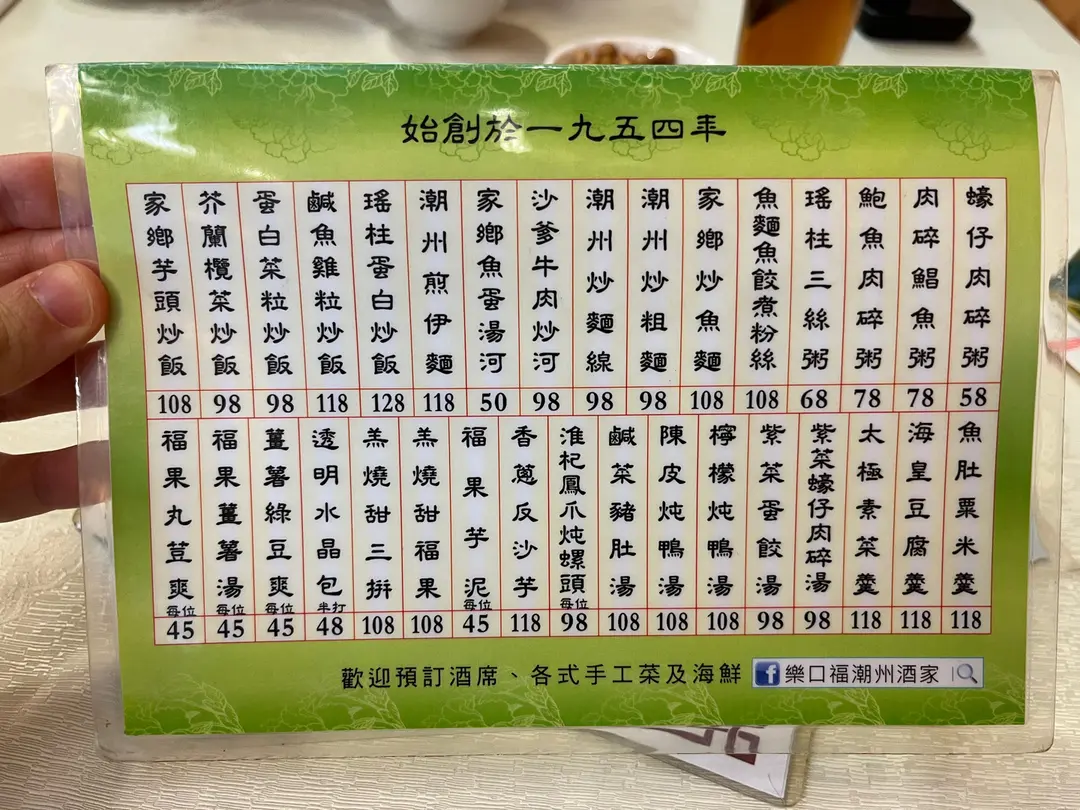 始創於一九五四年
蠔仔肉碎粥
58
肉碎鯧魚粥
78
鮑魚肉碎粥
78
瑤柱三絲粥
68
魚麵魚餃煮粉絲
108
家鄉炒魚麵
108
潮州炒粗麵
98
潮州炒麵線
98
沙爹牛肉炒河
98
家鄉魚蛋湯河
50
潮州煎伊麵
118
瑤柱蛋白炒飯
128
鹹魚雞粒炒飯
118
蛋白菜粒炒飯
98
芥蘭欖菜炒飯
98
家鄉芋頭炒飯
108
魚肚粟米羹
118
海皇豆腐羹
118
太極素菜羹
118
紫菜蠔仔肉碎湯
98
紫菜蛋餃湯
98
檸檬炖鴨湯
108
陳皮炖鴨湯
108
鹹菜豬肚湯
108
淮杞鳳爪炖螺頭 每位
98
香蔥反沙芋
118
福果芋泥 每位
45
羔燒甜福果
108
羔燒甜三拼
108
透明水晶包 半打
48
薑薯綠豆爽 每位
45
福果薑薯湯 每位
45
福果丸荳爽 每位
45
歡迎預訂酒席、各式手工菜及海鮮 f 樂口福潮州酒家